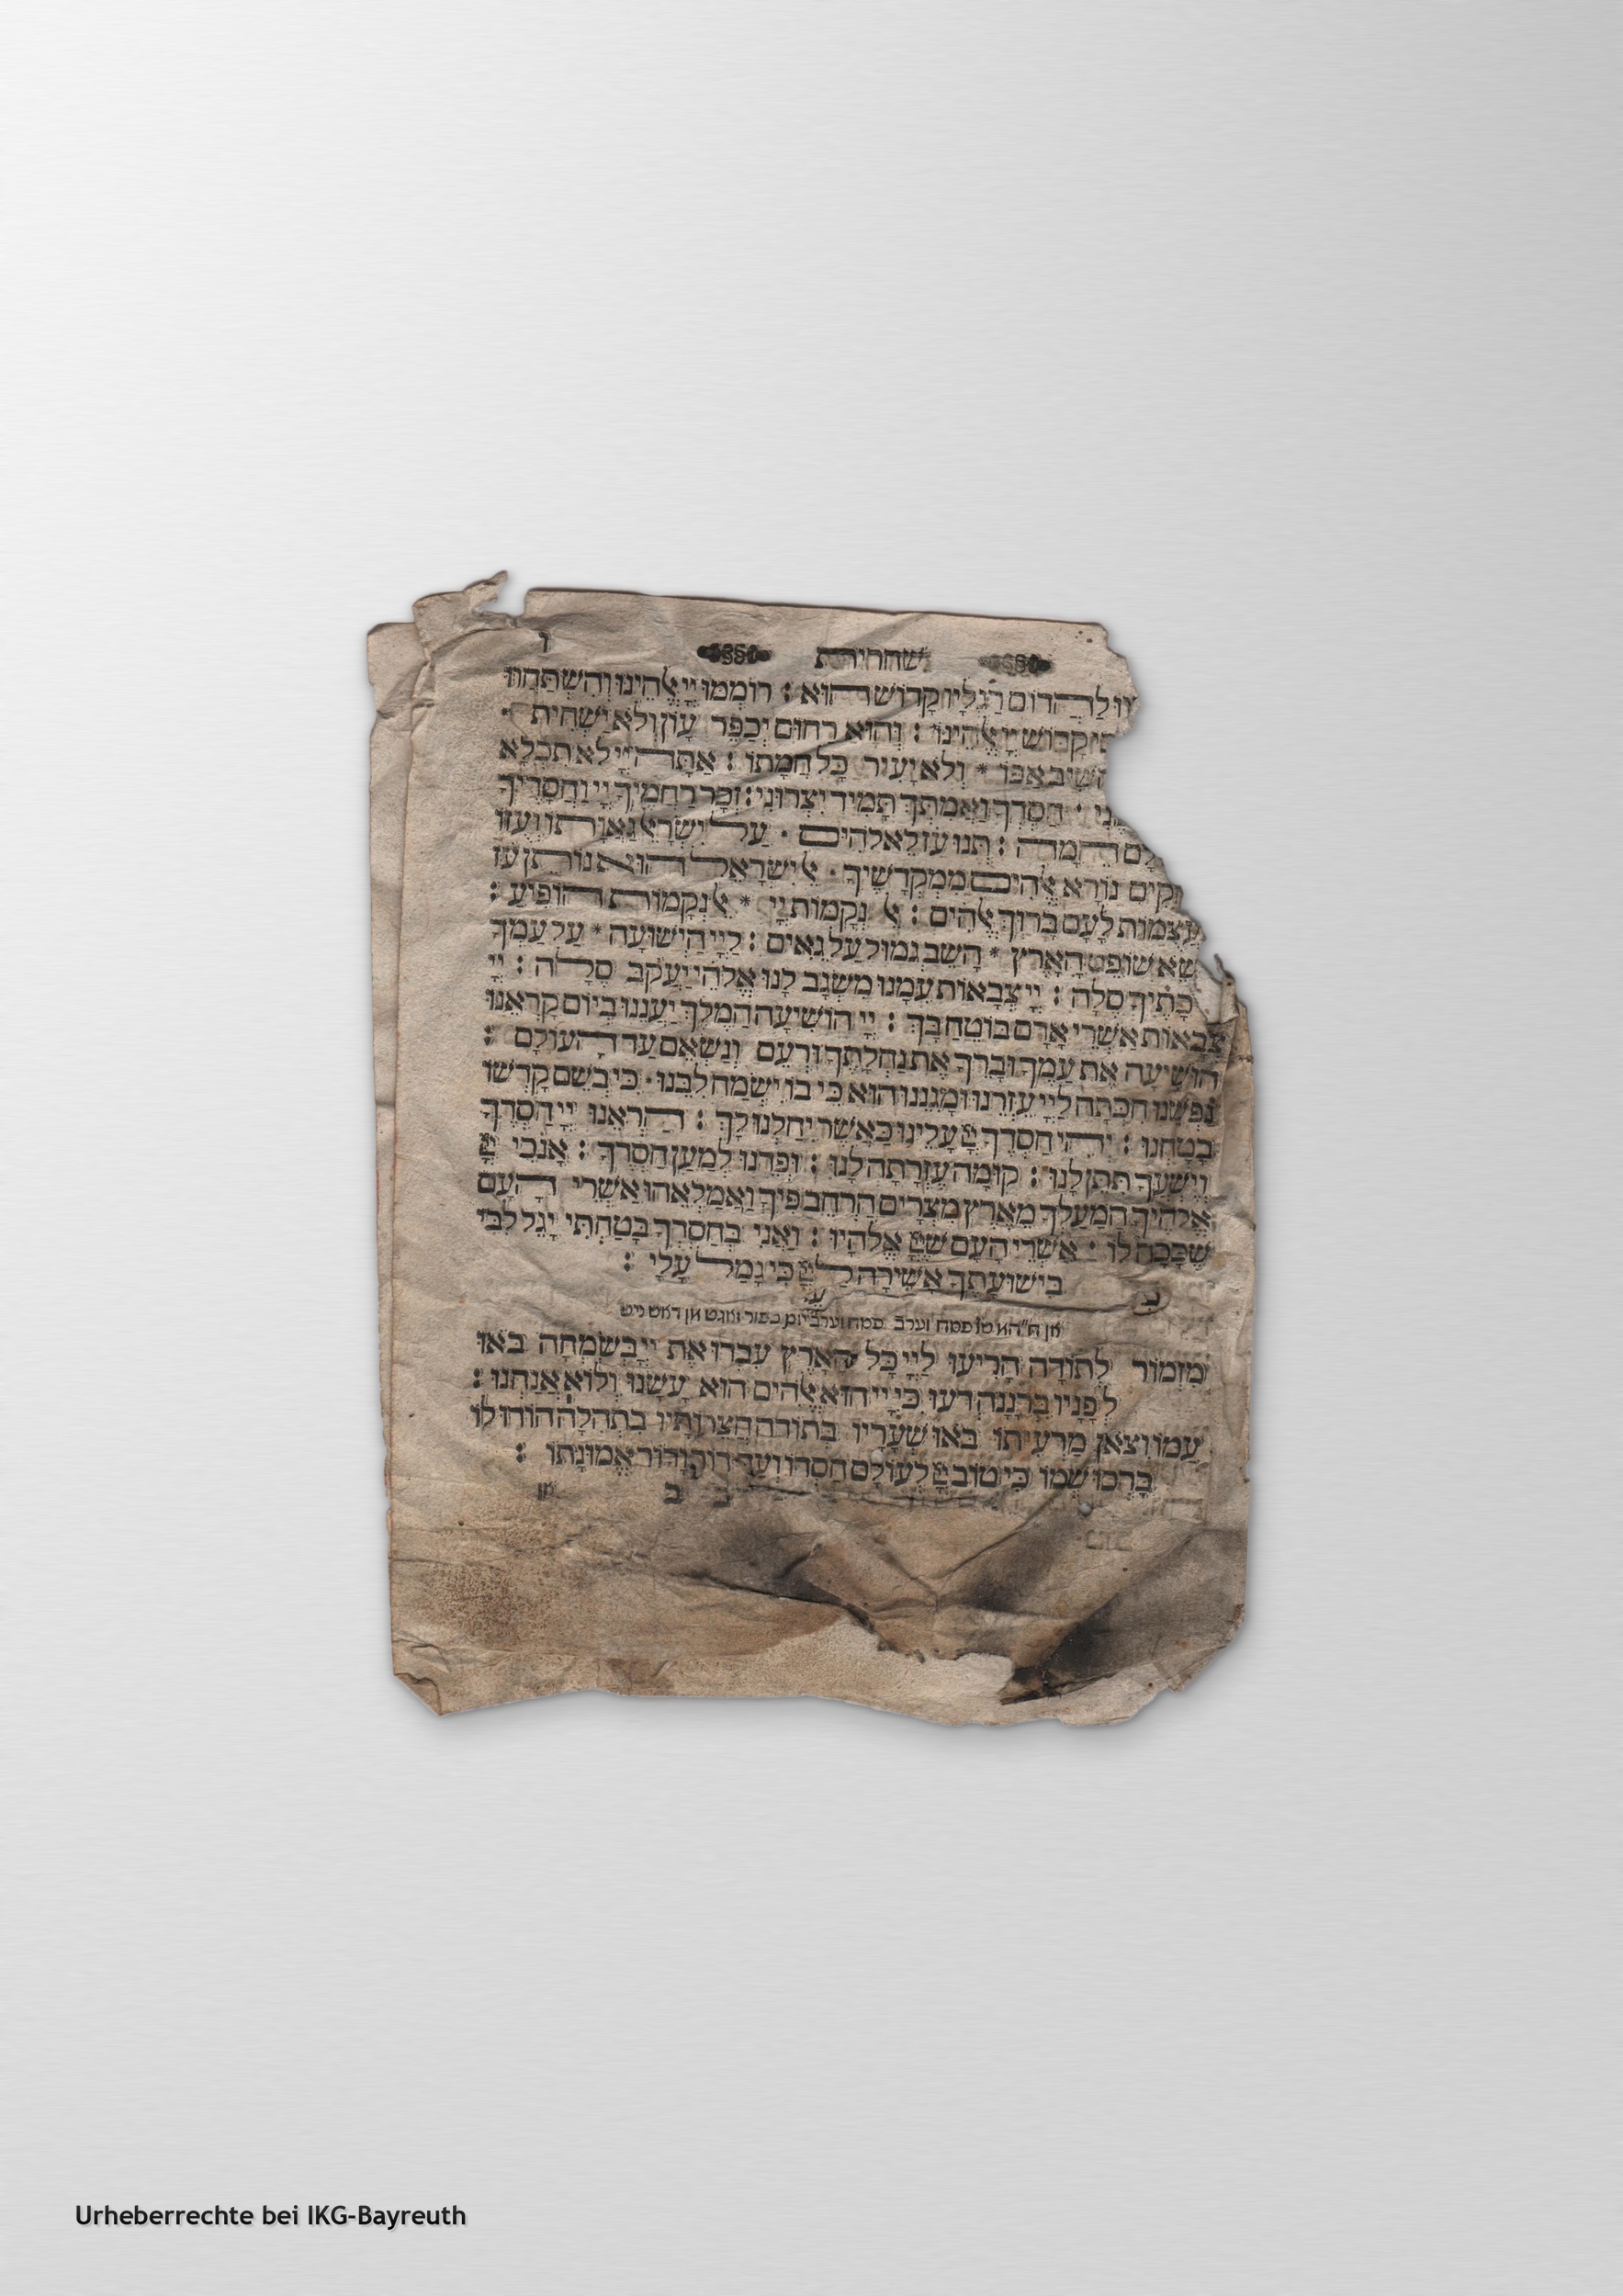 ו
שחרית
לַהֲדוֹם רַגְלָיו קָדוֹשׁ הוּא : רוֹמְמוּ יְיָ אֱלֹהֵינוּ וְהִשְׁתַּחֲווּ
קָדוֹשׁ יְיָ אֱלֹהֵינוּ : וְהוּא רַחוּם יְכַפֵּר עָוֹן וְלֹא יַשְׁחִית ·
אַפּוֹ * וְלֹא יָעִיר כָּל חֲמָתוֹ : אַתָּה יְיָ לֹא תִכְלָא
חַסְדְּךָ וַאֲמִתְּךָ תָּמִיד יִצְּרוּנִי : זְכֹר רַחֲמֶיךָ יְיָ וַחֲסָדֶיךָ
הֵמָּה : תְּנוּ עֹז לֵאלֹהִים · עַל יִשְׂרָאֵל גַּאֲוָתוֹ וְעֻזּוֹ
נוֹרָא אֱלֹהִים מִמִּקְדָּשֶׁיךָ · אֵל יִשְׂרָאֵל הוּא נוֹתֵן עֹז
וְתַעֲצֻמוֹת לָעָם בָּרוּךְ אֱלֹהִים : אֵל נְקָמוֹת יְיָ * אֵל נְקָמוֹת הוֹפִיעַ :
שׁוֹפֵט הָאָרֶץ * הָשֵׁב גְּמוּל עַל גֵּאִים : לַיְיָ הַיְשׁוּעָה * עַל עַמְּךָ
סֶלָה : יְיָ צְבָאוֹת עִמָּנוּ מִשְׂגָּב לָנוּ אֱלֹהֵי יַעֲקֹב סֶלָה : יְיָ
צְבָאוֹת אַשְׁרֵי אָדָם בּוֹטֵחַ בָּךְ : יְיָ הוֹשִׁיעָה הַמֶּלֶךְ יַעֲנֵנוּ בְיוֹם קָרְאֵנוּ
הוֹשִׁיעָה אֶת עַמֶּךָ וּבָרֵךְ אֶת נַחֲלָתֶךָ וּרְעֵם וְנַשְּׂאֵם עַד הָעוֹלָם :
נַפְשֵׁנוּ חִכְּתָה לַיְיָ עֶזְרֵנוּ וּמָגִנֵּנוּ הוּא כִּי בוֹ יִשְׂמַח לִבֵּנוּ · כִּי בְשֵׁם קָדְשׁוֹ
בָטָחְנוּ : יְהִי חַסְדְּךָ יְיָ עָלֵינוּ כַּאֲשֶׁר יִחַלְנוּ לָךְ : הַרְאֵנוּ יְיָ חַסְדֶּךָ
וְיֶשְׁעֲךָ תִּתֶּן לָנוּ : קוּמָה עֶזְרָתָה לָּנוּ : וּפְדֵנוּ לְמַעַן חַסְדֶּךָ : אָנֹכִי יְיָ
אֱלֹהֶיךָ הַמַּעַלְךָ מֵאֶרֶץ מִצְרָיִם הַרְחֶב פִּיךָ וַאֲמַלְאֵהוּ אַשְׁרֵי הָעָם
שֶׁכָּכָה לּוֹ · אַשְׁרֵי הָעָם שֶׁיְיָ אֱלֹהָיו : וַאֲנִי בְּחַסְדְּךָ בָטַחְתִּי יָגֵל לִבִּי
בִּישׁוּעָתֶךָ אָשִׁירָה לַיְיָ כִּי גָמַל עָלָי :
פסח וערב יום כפור זאגט מן דאש ניט
מִזְמוֹר לְתוֹדָה הָרִיעוּ לַיְיָ כָּל הָאָרֶץ עִבְדוּ אֶת יְיָ בְּשִׂמְחָה בֹּאוּ
לְפָנָיו בִּרְנָנָה דְּעוּ כִּי יְיָ הוּא אֱלֹהִים הוּא עָשָׂנוּ וְלוֹא אֲנַחְנוּ :
עַמּוֹ וְצֹאן מַרְעִיתוֹ בֹּאוּ שְׁעָרָיו בְּתוֹדָה חֲצֵרוֹתָיו בִּתְהִלָּה הוֹדוּ לוֹ
בָּרְכוּ שְׁמוֹ כִּי טוֹב יְיָ לְעוֹלָם חַסְדּוֹ וְעַד דּוֹר וָדוֹר אֱמוּנָתוֹ :
ב ב
Urheberrechte bei IKG-Bayreuth